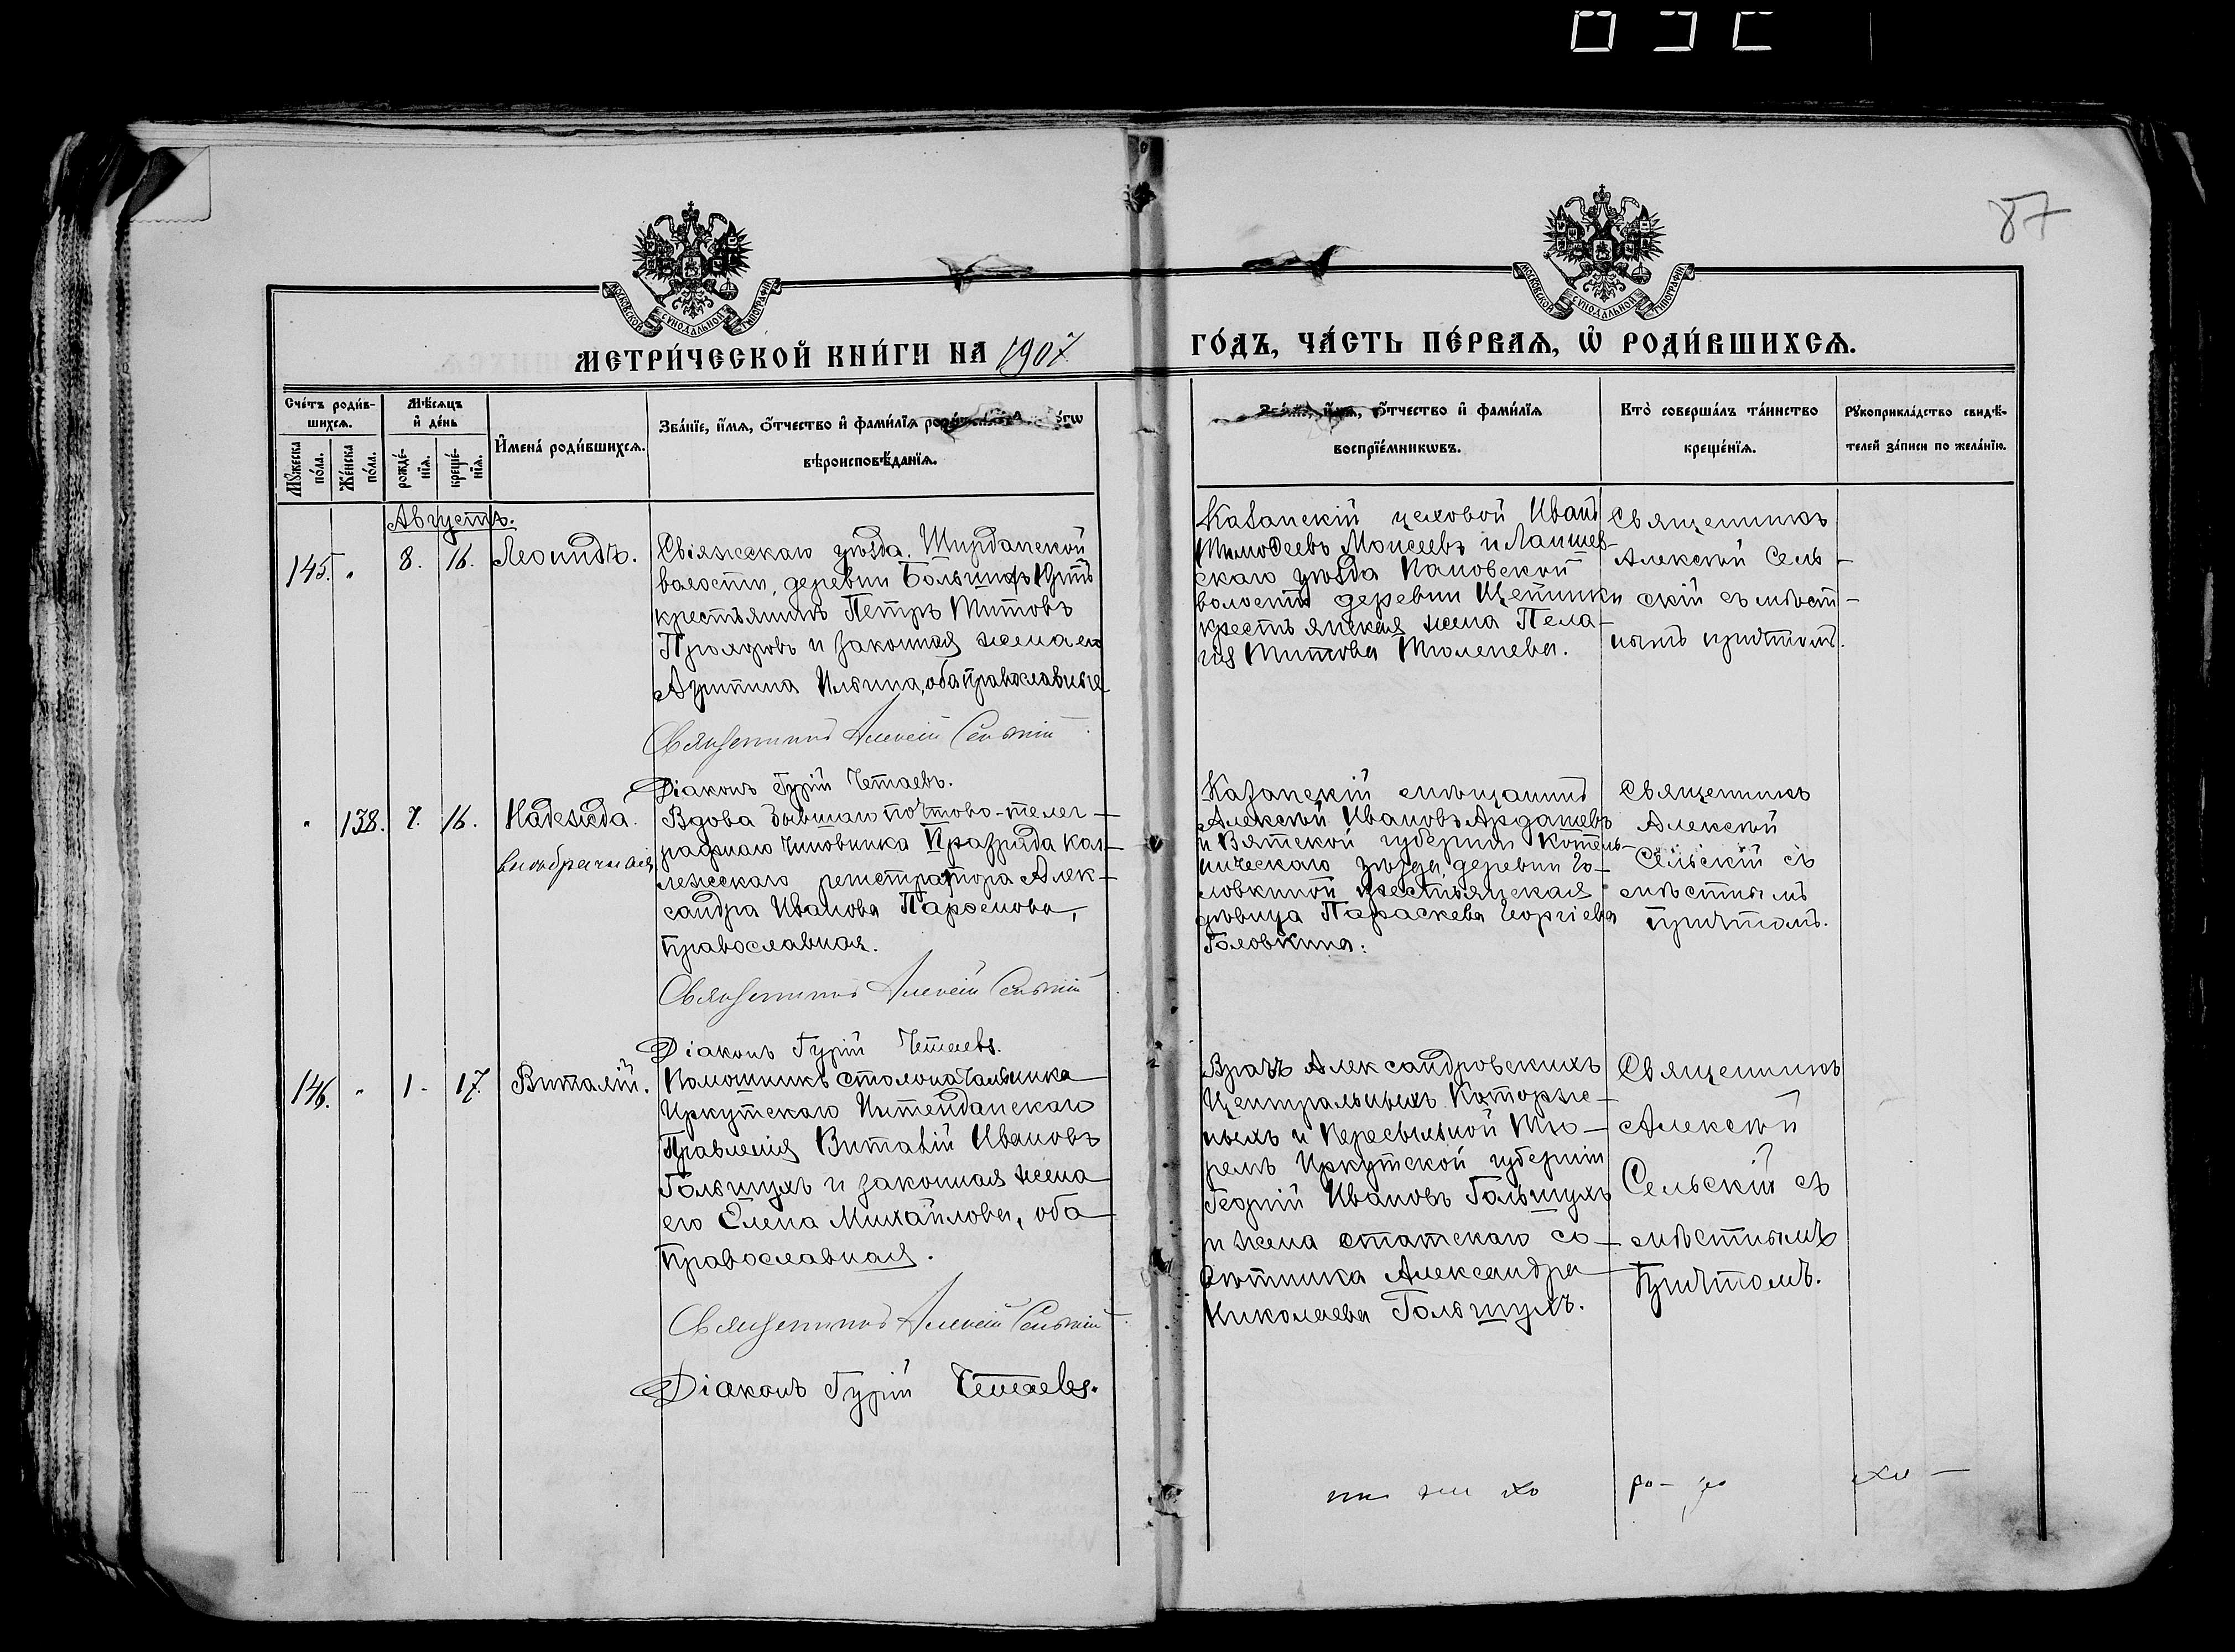 87
МОСКОВСКОЙ СѴНОДАЛЬНОЙ ТИПОГРАФІИ
МОСКОВСКОЙ СѴНОДАЛЬНОЙ ТИПОГРАФІИ
МЕТРИ́ЧЕСКОЙ КНИ́ГИ НА 1907
ГО́ДЪ, ЧА́СТЬ ПЕ́РВАѦ, Ѡ҆ РОДИ́ВШИХСѦ.
Сче́тъ роди́в-
шихсѧ.
Мѣ́сѧцъ
и҆ де́нь
Мꙋ́жеска
по́ла.
Же́нска
по́ла.
рожде́-
нїѧ.
креще́-
нїѧ.
И҆мена̀ роди́вшихсѧ.
Зва́нїе, и҆́мѧ, ѻ҆́тчество и҆ фами́лїѧ
вѣроисповѣ́данїѧ.
и҆́мѧ, ѻ҆́тчество и҆ фами́лїѧ
воспрїе́мникѡвъ.
Кто̀ соверша́лъ та́инство
креще́нїѧ.
Рꙋкоприкла́дство свидѣ́-
телей за́писи по жела́нїю.
Августъ.
145. „ 8. 16. Леонидъ.
Свіяжскаго уѣзда, Ширданской
волости, деревни
крестьянинъ Петръ Титовъ
и законная жена его
Агрипина Ильина, оба православные
Священникъ Алексій Сельскій
Діаконъ Гурій Четаевъ.
Казанскій цеховой Иванъ
Тимоѳеевъ Моисеевъ и Лаишев-
скаго уѣзда
волости деревни Щетинки
крестьянская жена Пела-
гія Титова Тюленева.
Священникъ
Алексѣй Сель-
скій съ мѣст-
нымъ причтомъ.
„ 138. 7. 16. Надежда.
внѣбрачная
Вдова бывшаго почтово-телег-
рафнаго чиновника разряда кол-
лежскаго регистратора Алек-
сандра Иванова
православная.
Священникъ Алексій Сельскій
Діаконъ Гурій Четаевъ.
Казанскій мѣщанинъ
Алексѣй Ивановъ Ардашевъ
и Вятской губерніи Котель-
ническаго уѣзда, деревни Го-
ловкиной крестьянская
дѣвица Параскева Георгіева
Головкина.
Священникъ
Алексѣй
Сельскій съ
мѣстнымъ
причтомъ.
146. „ 1. 17. Виталій.
Помошникъ столоначальника
Иркутскаго Интенданскаго
Правленія Виталій Ивановъ
Гольшухъ и законная жена
его Елена Михайлова, оба
православная.
Священникъ Алексій Сельскій
Діаконъ Гурій Четаевъ.
Врачъ Александровскихъ
Центральныхъ Каторж-
ныхъ и Пересыльной Тю-
ремъ Иркутской губерніи
Георгій Ивановъ Гольшухъ
и жена статскаго со-
вѣтника Александра
Николаева Гольшухъ.
Священникъ
Алексѣй
Сельскій съ
мѣстнымъ
причтомъ.